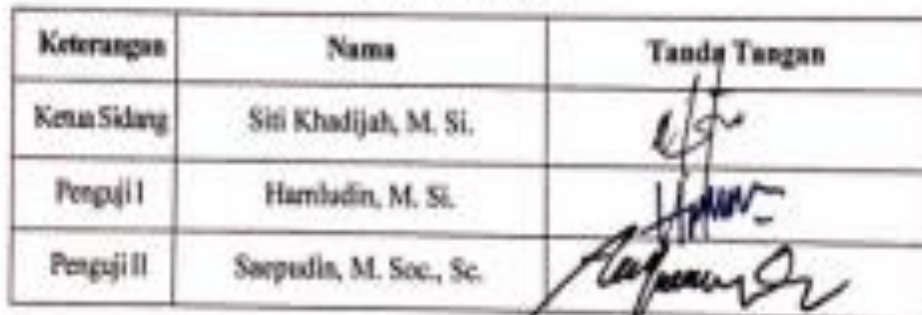 Keterangan Nama Tanda Tangan
Ketua Sidang Siti Khadijah, M. Si.
Penguji I Hamludin, M. Si.
Penguji II Saepudin, M. Soc., Sc.